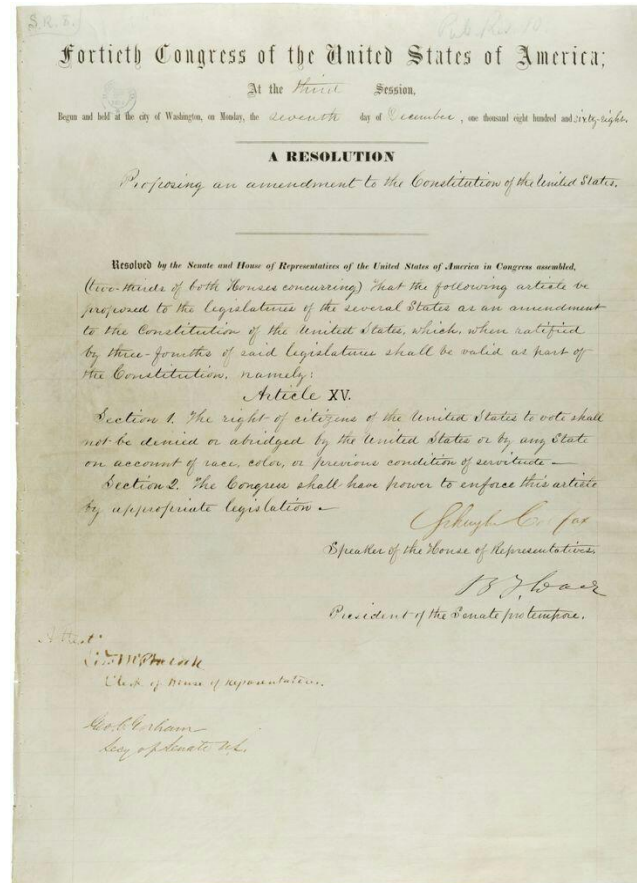 S.R. 8.
Pub Res 10
Fortieth Congress of the United States of America;
At the third Session,
Begun and held at the city of Washington, on Monday, the seventh day of December, one thousand eight hundred and sixty-eight.
A RESOLUTION
Proposing an amendment to the Constitution of the United States.
Resolved by the Senate and House of Representatives of the United States of America in Congress assembled,
(two-thirds of both Houses concurring) That the following article be
proposed to the legislatures of the several States as an amendment
to the Constitution of the United States, which, when ratified
by three-fourths of said legislatures shall be valid as part of
the Constitution, namely:
Article XV.
Section 1. The right of citizens of the United States to vote shall
not be denied or abridged by the United States or by any State
on account of race, color, or previous condition of servitude—
Section 2. The Congress shall have power to enforce this article
by appropriate legislation—
Schuyler Colfax
Speaker of the House of Representatives.
B F Wade
President of the Senate pro tempore.
Attest:
Clerk of House of Representatives.
Geo. C. Gorham
Secy of Senate U.S.